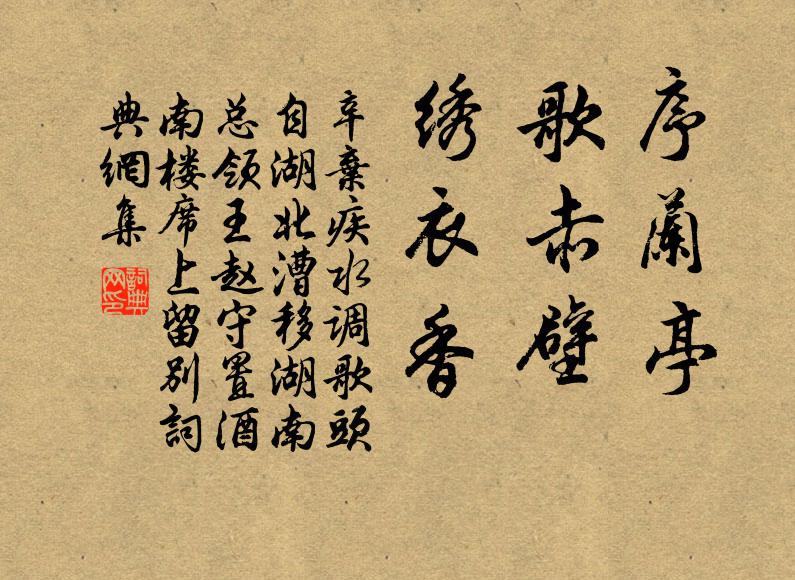 序兰亭
歌赤壁
绣衣香
辛棄疾水调歌頭
自湖北漕移湖南
总领王赵守置酒
南楼席上留别詞
典網集
詞典
网印